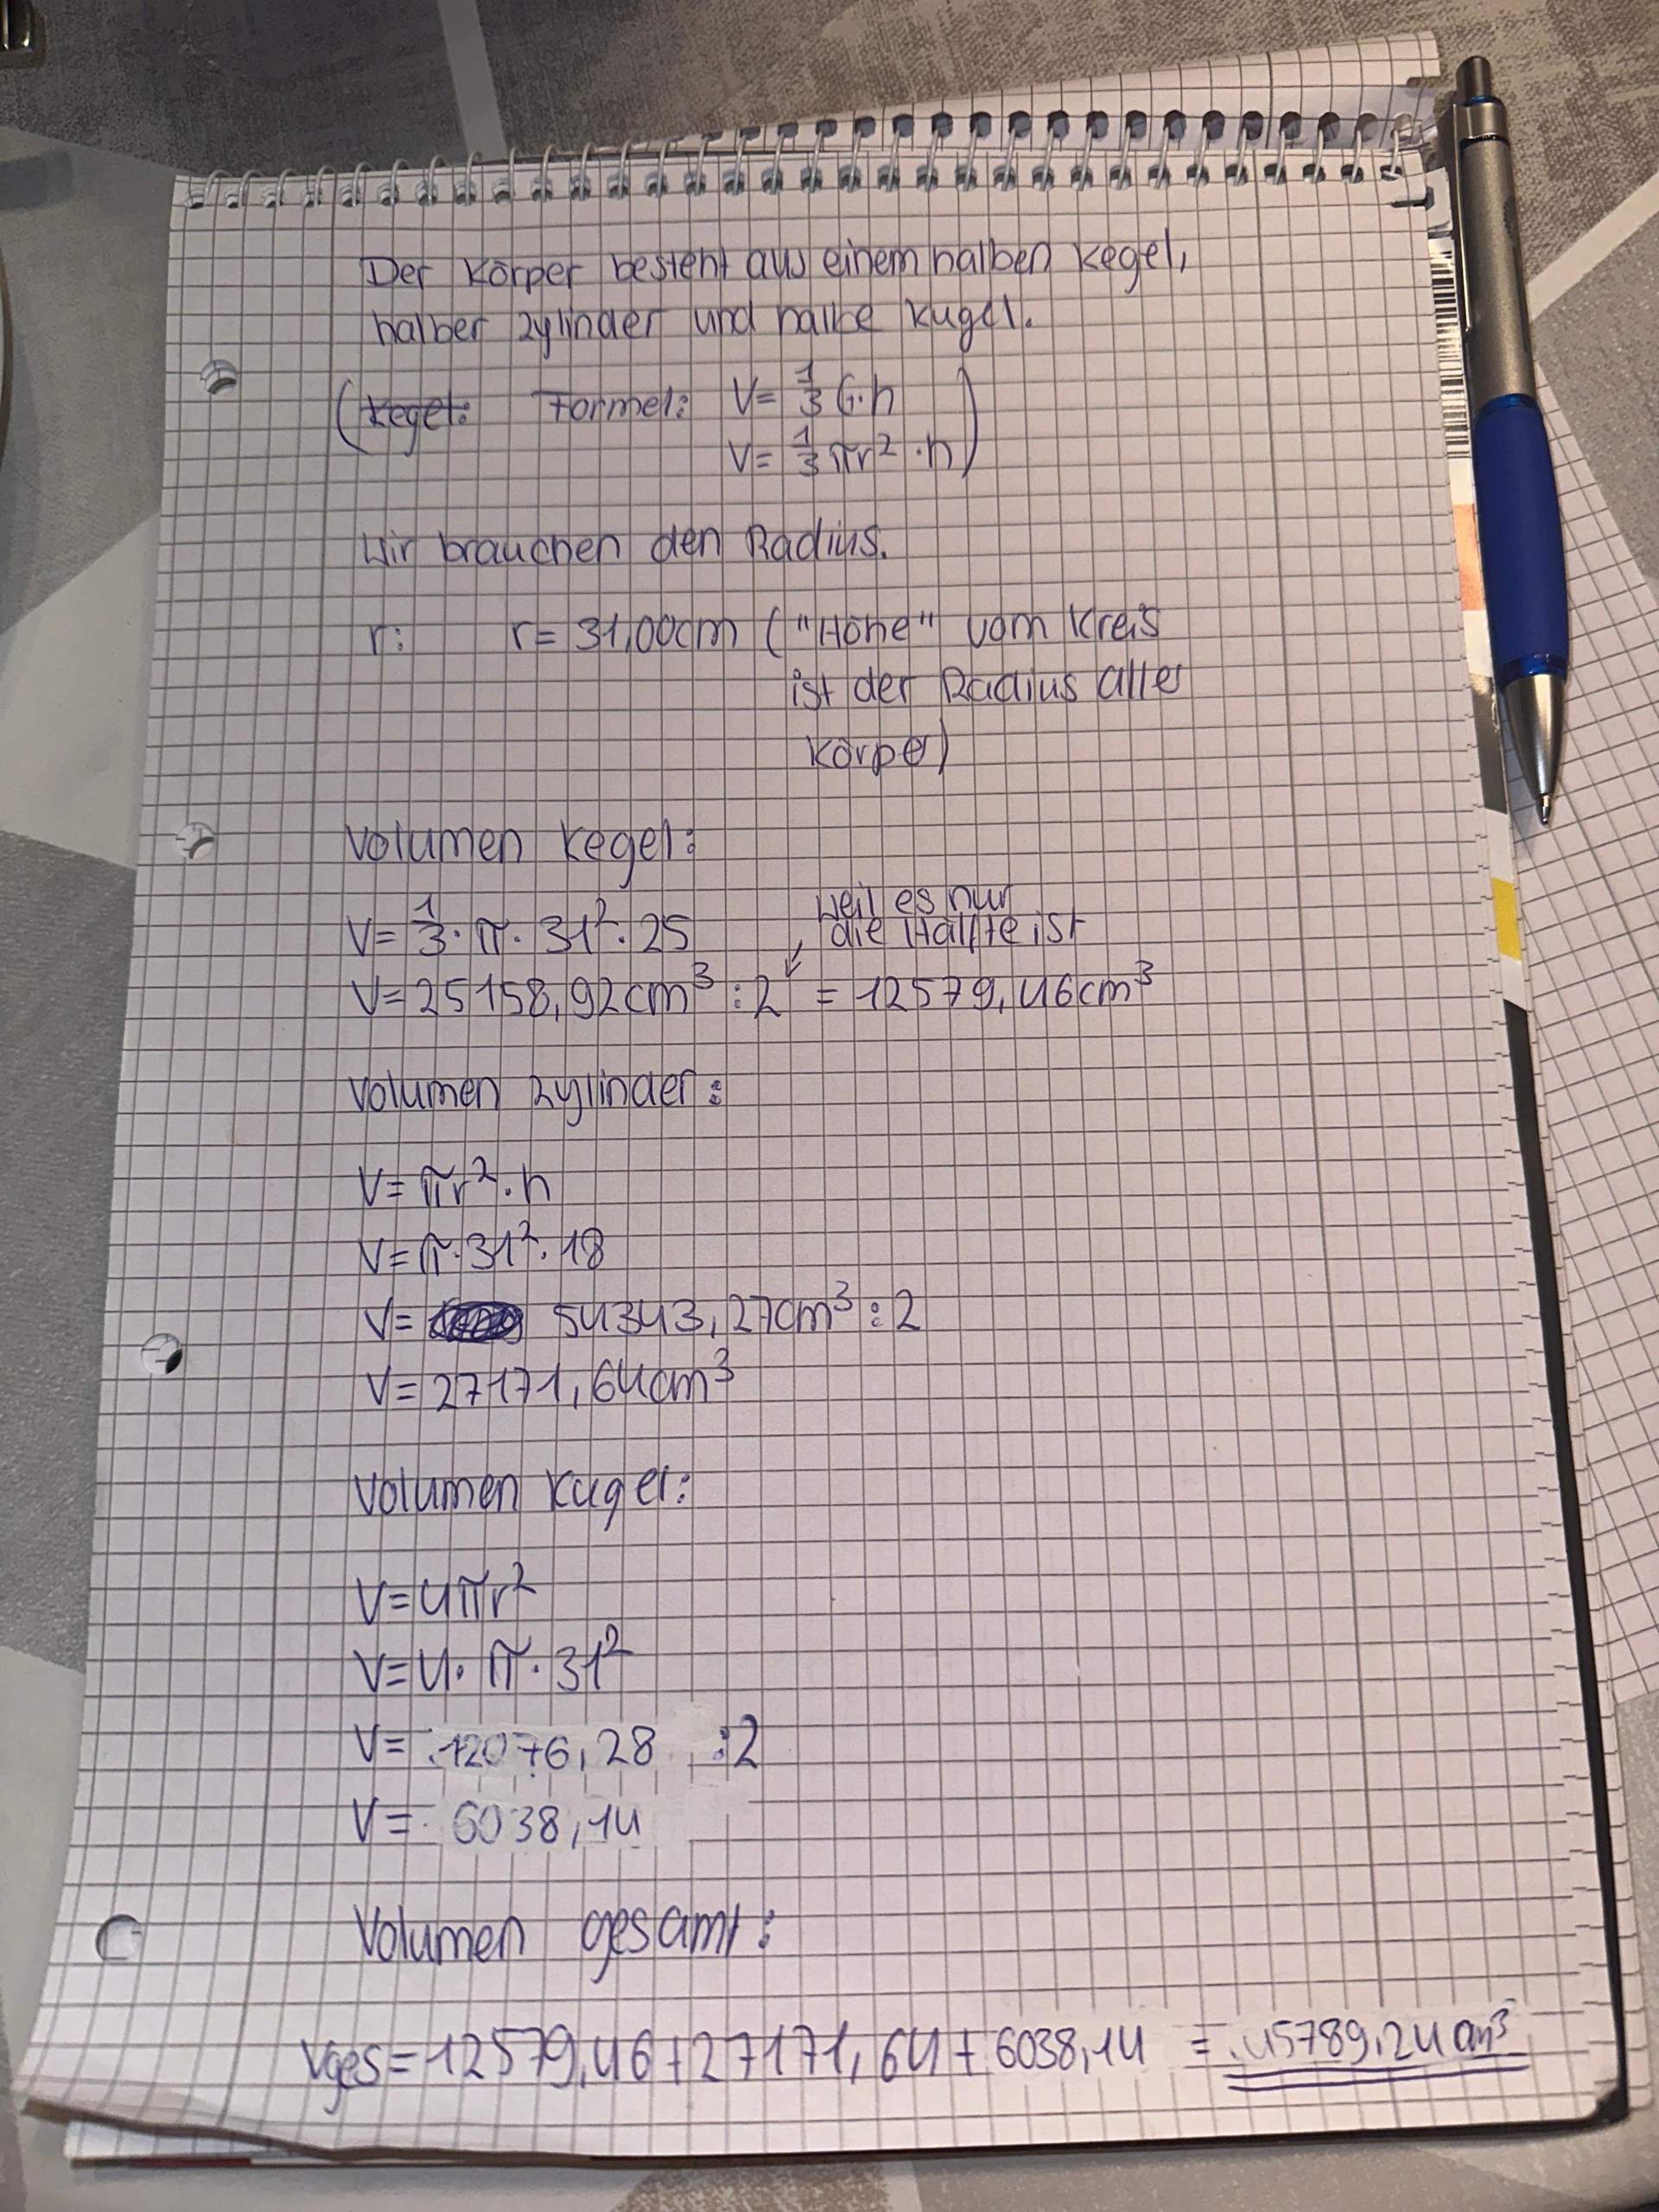 Der Körper besteht aus einem halben Kegel,
halber Zylinder und halbe Kugel.
(Kegel: Formel: V= 1/3 G·h
V= 1/3 πr² ·h)
Wir brauchen den Radius.
r: r= 31,00cm ("Höhe" vom Kreis
ist der Radius aller
Körper)
Volumen Kegel:
weil es nur
die Hälfte ist
V= 1/3 · π · 31² · 25
V= 25158,92cm³ :2 = 12579,46cm³
Volumen Zylinder:
V= πr² · h
V= π·31²·18
V= 54343,27cm³ :2
V= 27171,64cm³
Volumen Kugel:
V=4πr²
V=4·π·31²
V= 12076,28 :2
V= 6038,14
Volumen gesamt:
Vges=12579,46+27171,64+6038,14 = 45789,24cm³